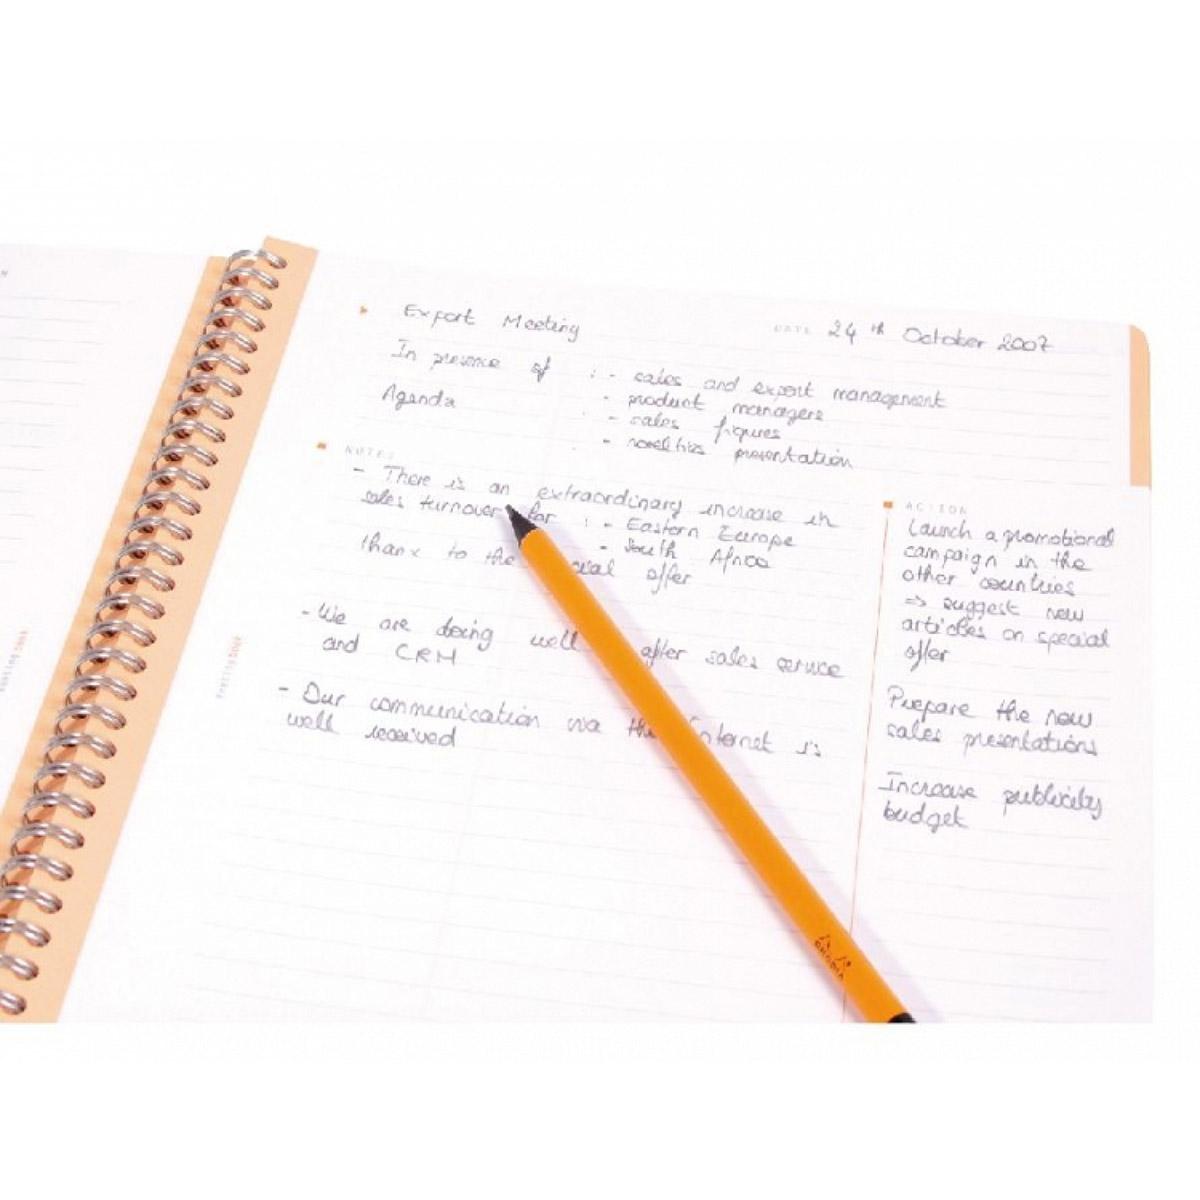 Export Meeting
DATE 24th October 2007
In presence of : - sales and export management
- product managers
Agenda : - sales figures
- novelties presentation
NOTES
- There is an extraordinary increase in
sales turnover for : - Eastern Europe
- South Africa
thanx to the offer
- We are doing well after sales service
and CRM
- Our communication via the Internet is
well received
ACTION
Launch a promotional
campaign in the
other countries
=> suggest new
articles on special
offer
Prepare the new
sales presentations
Increase publicity
budget
RHODIA